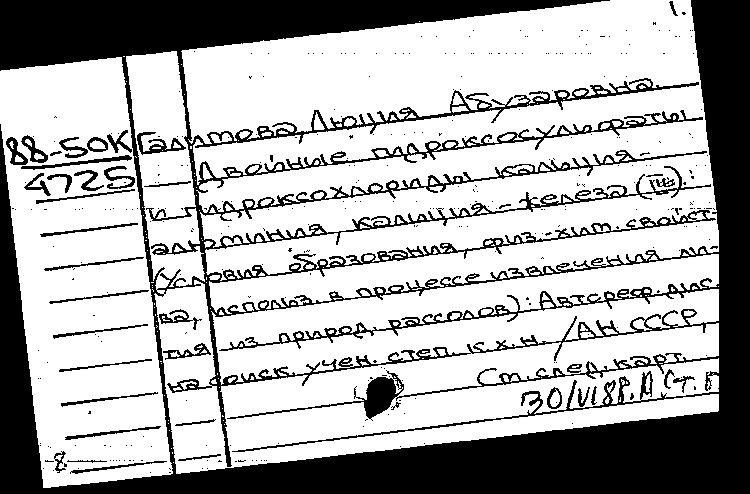 1.
88-50К Галимова, Люция Абузаровна.
4725 Двойные гидроксосульфаты
и гидроксохлориды кальция-
алюминия, кальция-железа (III):
(Условия образования, физ.-хим. свойст-
ва, использ. в процессе извлечения ли-
тия из природ. рассолов): Автореф. дис.
на соиск. учен. степ. к.х.н. / АН СССР,
См. след. карт.
30/VI 88г.
8.